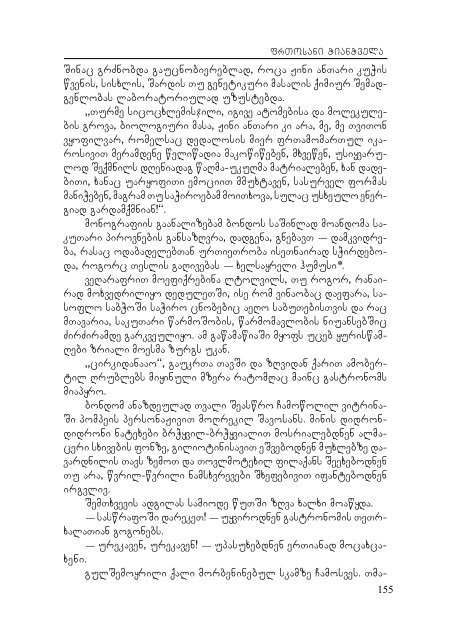 ფრთოსანი ჭიანჭველა
შინაც გრძნობდა გაუცნობიერებლად, როცა ჟინი ანთარი კუჭის
წვენის, სისხლის, შარდის თუ გენეტიკური მასალის ქიმიურ შემად-
გენლობას ლაბორატორიულად უზუსტებდა.
„თურმე სიცოცხლემისჯილი, იგივე ატომებისა და მოლეკულე-
ბის გროვა, ბიოლოგიური მასა, ჟინი ანთარი კი არა, მე, მე თვითონ
ვყოფილვარ, რომელსაც დედალოსის მიერ ფრთამომართულ იკა-
როსივით მერამდენე წელიწადია მაკოწიწებენ, მხვეწენ, უსიყვარუ-
ლოდ შექმნილს დღენიადაგ წაღმა-უკუღმა მატრიალებენ, ხან დადე-
ბითი, ხანაც უარყოფითი ემოციით მმუხტავენ, სასურველ ფორმას
მანიჭებენ, მაგრამ თუ საჭიროებამ მოითხოვა, სულაც უსხეულო ენერ-
გიად გარდამქმნიან!“.
მონოგრაფიის გაანალიზებამ ბონდოს საშინლად მოანდომა სა-
კუთარი პიროვნების განსაზღვრა, დადგენა, გნებავთ — დამკვიდრე-
ბა, რასაც ოდაბადელებთან ურთიერთობა ისეთნაირად სჭირდებო-
და, როგორც თესლის გაღივებას — ხელსაყრელი ჰუმუსი*.
ვეღარაფრით მოეფიქრებინა ლტოლვილს, თუ როგორ, რანაი-
რად მოხვედრილიყო დედულეთში, ისე რომ ვინაობაც დაეფარა, სა-
სოფლო საბჭოში საჭირო ცნობებიც აეღო საბუთებისთვის და რაც
მთავარია, საკუთარი წარმოშობის, წარმომავლობის ნიუანსებშიც
ძირძირამდე გარკვეულიყო. ამ გაწამაწიაში მყოფს უცებ ყურისწამ-
ღები ზრიალი მოესმა ზურგს უკან.
„ცირკიდანააო“, გაუკრთა თავში და ზღვიდან ქარით ამობერ-
ტილ ღრუბლებს მიყინული მზერა რატომღაც მაინც გასტრონომს
მიაპყრო.
ბონდომ ანაზდეულად თვალი შეასწრო ჩამოწოლილ ვიტრინა-
ში პომპეის პერსონაჟივით მოღრეკილ შავოსანს. მინის დიდრონ-
დიდრონი ნატეხები ბრჭყვილ-ბრჭყვიალით მოსრიალებდნენ ალმა-
ცერი სხივების ფონზე, გილიოტინისავით ეშვებოდნენ მუხლებზე და-
ვარდნილის თავს ზემოთ და თოვლმოტეხილ ფილაქანს შეეხებოდნენ
თუ არა, წვრილ-წვრილი ნამსხვრევები შხეფებივით იფანტებოდნენ
ირგვლივ.
შემთხვევის ადგილას სამიოდე წუთში ზღვა ხალხი მოაწყდა.
— სასწრაფოში დარეკეთ! — უყვიროდნენ გასტრონომის თეთრ-
ხალათიან გოგონებს.
— ურეკავენ, ურეკავენ! — უპასუხებდნენ ერთიანად მოცახცა-
ხენი.
გულშემოყრილი ქალი მორბენინებულ სკამზე ჩამოსვეს. თმა-
155